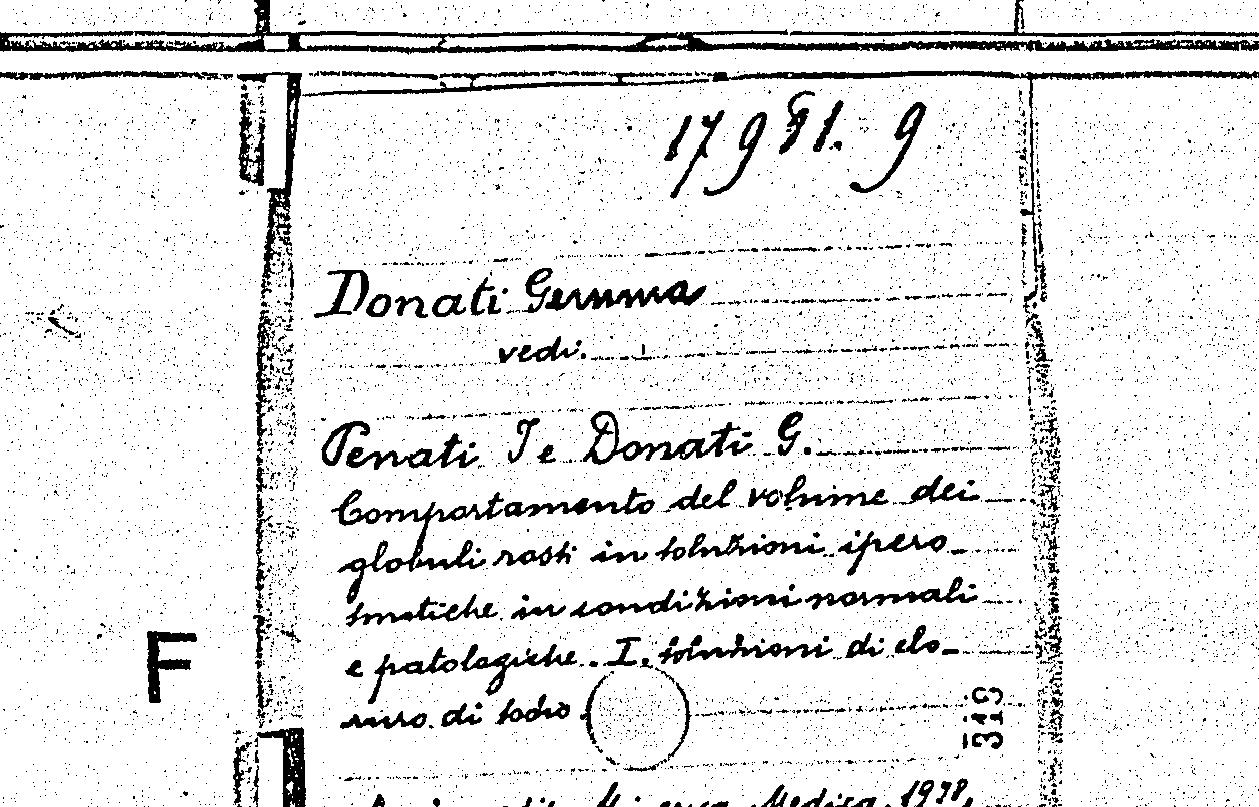 17981. 9
Donati Gemma
vedi.
Penati I e Donati G.
Comportamento del volume dei
globuli rossi in soluzioni ipero_
smotiche in condizioni normali
e patologiche. I. soluzioni di clo_
ruro di sodio.
F
319
Minerva Medica, 1938,